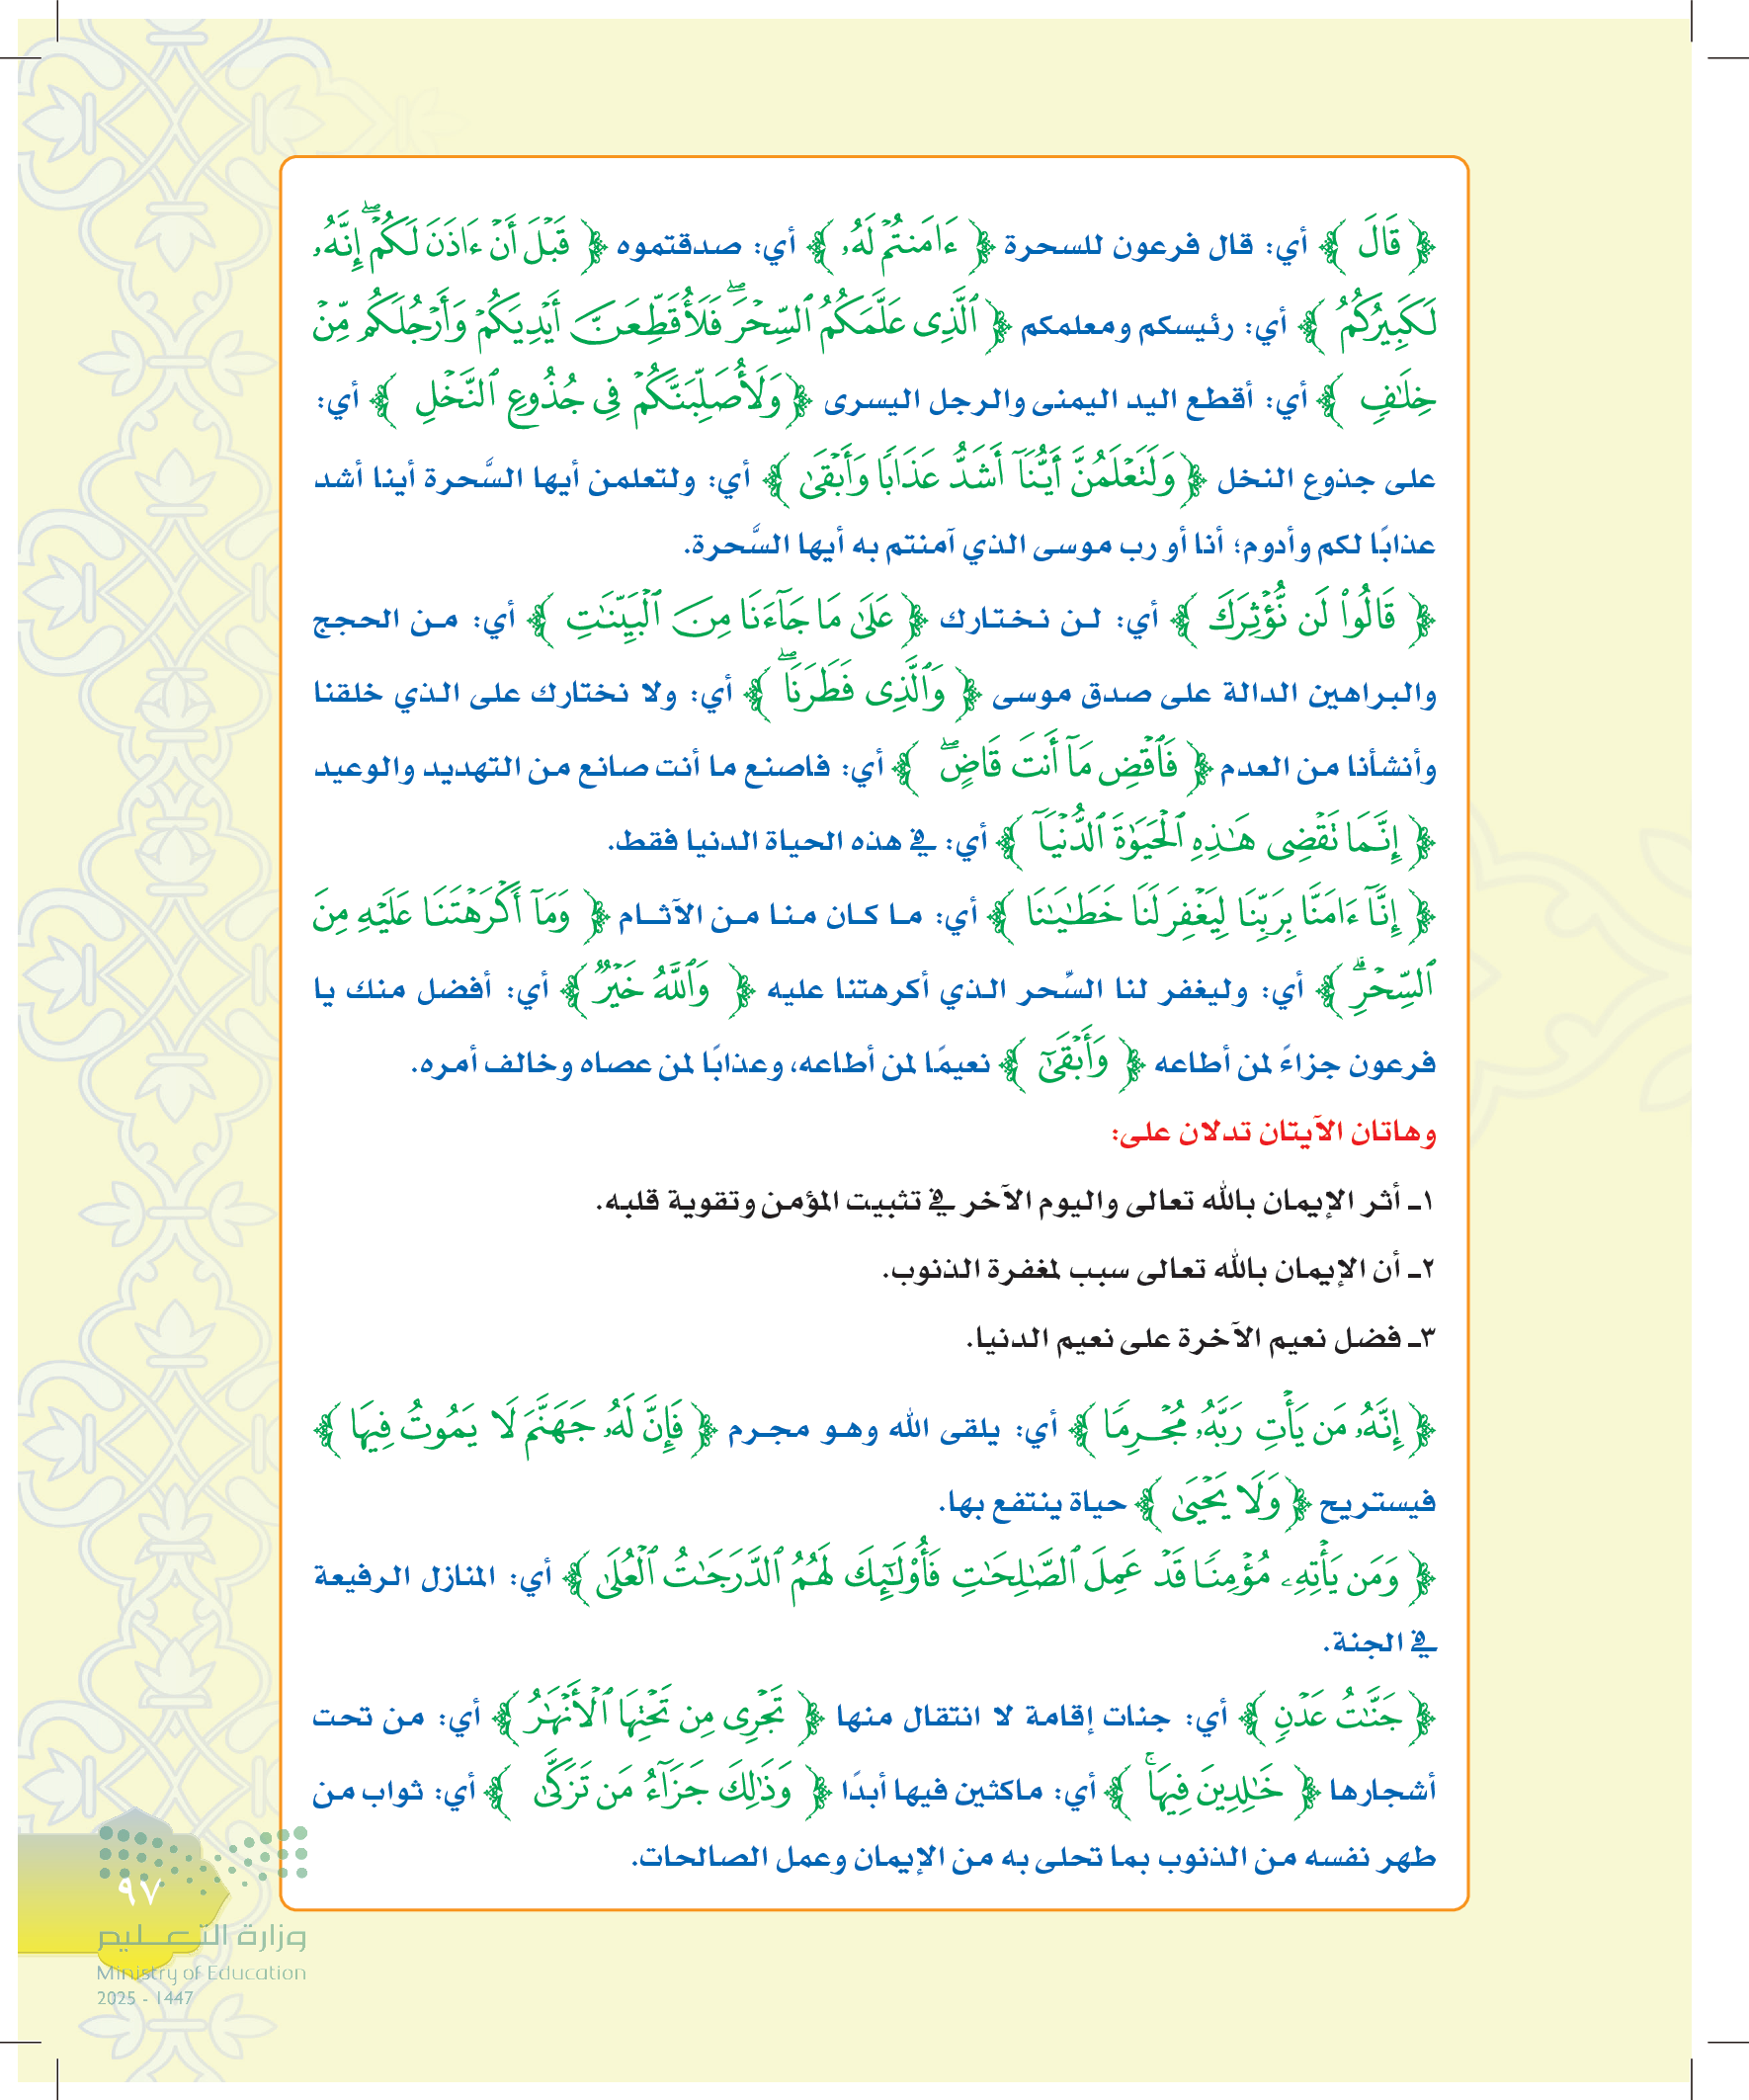 ﴿ قَالَ ﴾ أي: قال فرعون للسحرة ﴿ ءَامَنتُمْ لَهُۥ ﴾ أي: صدقتموه ﴿ قَبْلَ أَنْ ءَاذَنَ لَكُمْۖ إِنَّهُۥ
لَكَبِيرُكُمُ ﴾ أي: رئيسكم ومعلمكم ﴿ ٱلَّذِى عَلَّمَكُمُ ٱلسِّحْرَۖ فَلَأُقَطِّعَنَّ أَيْدِيَكُمْ وَأَرْجُلَكُم مِّنْ
خِلَٰفٍ ﴾ أي: أقطع اليد اليمنى والرجل اليسرى ﴿وَلَأُصَلِّبَنَّكُمْ فِى جُذُوعِ ٱلنَّخْلِ ﴾ أي:
على جذوع النخل ﴿وَلَتَعْلَمُنَّ أَيُّنَآ أَشَدُّ عَذَابًا وَأَبْقَىٰ ﴾ أي: ولتعلمن أيها السَّحرة أينا أشد
عذابًا لكم وأدوم؛ أنا أو رب موسى الذي آمنتم به أيها السَّحرة.
﴿ قَالُوا۟ لَن نُّؤْثِرَكَ ﴾ أي: لن نختارك ﴿ عَلَىٰ مَا جَآءَنَا مِنَ ٱلْبَيِّنَٰتِ ﴾ أي: من الحجج
والبراهين الدالة على صدق موسى ﴿ وَٱلَّذِى فَطَرَنَاۖ ﴾ أي: ولا نختارك على الذي خلقنا
وأنشأنا من العدم ﴿ فَٱقْضِ مَآ أَنتَ قَاضٍۖ ﴾ أي: فاصنع ما أنت صانع من التهديد والوعيد
﴿ إِنَّمَا تَقْضِى هَٰذِهِ ٱلْحَيَوٰةَ ٱلدُّنْيَآ ﴾ أي: في هذه الحياة الدنيا فقط.
﴿ إِنَّآ ءَامَنَّا بِرَبِّنَا لِيَغْفِرَ لَنَا خَطَٰيَٰنَا ﴾ أي: ما كان منا من الآثام ﴿ وَمَآ أَكْرَهْتَنَا عَلَيْهِ مِنَ
ٱلسِّحْرِۗ ﴾ أي: وليغفر لنا السِّحر الذي أكرهتنا عليه ﴿ وَٱللَّهُ خَيْرٌ﴾ أي: أفضل منك يا
فرعون جزاءً لمن أطاعه ﴿ وَأَبْقَىٰٓ ﴾ نعيمًا لمن أطاعه، وعذابًا لمن عصاه وخالف أمره.
وهاتان الآيتان تدلان على:
١ـ أثر الإيمان بالله تعالى واليوم الآخر في تثبيت المؤمن وتقوية قلبه.
٢ـ أن الإيمان بالله تعالى سبب لمغفرة الذنوب.
٣ـ فضل نعيم الآخرة على نعيم الدنيا.
﴿ إِنَّهُۥ مَن يَأْتِ رَبَّهُۥ مُجْرِمًا ﴾ أي: يلقى الله وهو مجرم ﴿فَإِنَّ لَهُۥ جَهَنَّمَ لَا يَمُوتُ فِيهَا ﴾
فيستريح ﴿وَلَا يَحْيَىٰ ﴾ حياة ينتفع بها.
﴿ وَمَن يَأْتِهِۦ مُؤْمِنًا قَدْ عَمِلَ ٱلصَّٰلِحَٰتِ فَأُو۟لَٰٓئِكَ لَهُمُ ٱلدَّرَجَٰتُ ٱلْعُلَىٰ ﴾ أي: المنازل الرفيعة
في الجنة.
﴿ جَنَّٰتُ عَدْنٍ ﴾ أي: جنات إقامة لا انتقال منها ﴿ تَجْرِى مِن تَحْتِهَا ٱلْأَنْهَٰرُ ﴾ أي: من تحت
أشجارها ﴿ خَٰلِدِينَ فِيهَاۚ ﴾ أي: ماكثين فيها أبدًا ﴿ وَذَٰلِكَ جَزَآءُ مَن تَزَكَّىٰ ﴾ أي: ثواب من
طهر نفسه من الذنوب بما تحلى به من الإيمان وعمل الصالحات.
٩٧
وزارة التعليم
Ministry of Education
2025 - 1447